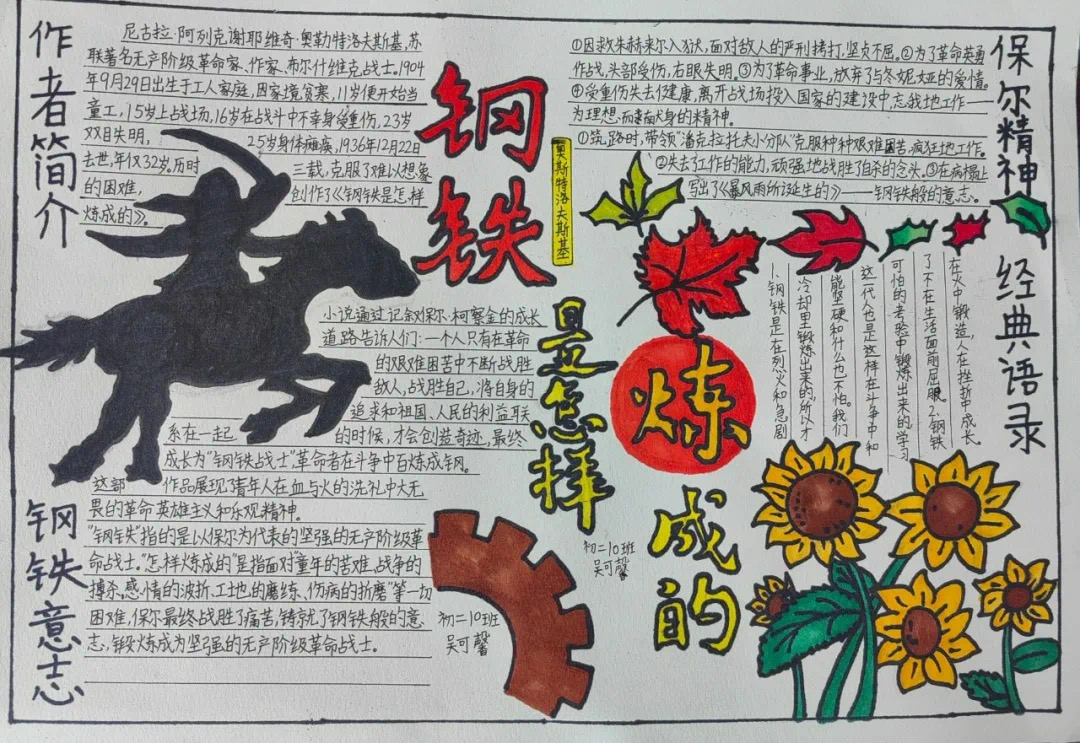 作者简介
尼古拉·阿列克谢耶维奇·奥勒特洛夫斯基,苏
联著名无产阶级革命家、作家、布尔什维克战士。1904
年9月29日出生于工人家庭,因家境贫寒,11岁便开始当
童工,15岁上战场,16岁在战斗中不幸身受重伤,23岁
双目失明,25岁身体瘫痪,1936年12月22日
去世,年仅32岁。历时三载,克服了难以想象
的困难,创作了《钢铁是怎样
炼成的》。
钢铁
是怎样
炼
成的
奥斯特洛夫斯基
保尔精神
①因救朱赫来尔入狱,面对敌人的严刑拷打,坚贞不屈。②为了革命英勇
作战,头部受伤,右眼失明。③为了革命事业,放弃了与冬妮娅的爱情。
④受重伤失去健康,离开战场投入国家的建设中,忘我地工作——
为理想而献身的精神。
①筑路时,带领“潘克拉托夫小分队”克服种种艰难困苦,疯狂地工作。
②失去了工作的能力,顽强地战胜了自杀的念头。③在病榻上
写出了《暴风雨所诞生的》——钢铁般的意志。
经典语录
1.钢铁是在烈火和急剧
冷却里锻炼出来的,所以才
能坚硬和什么也不怕。我们
这一代人也是这样在斗争中和
可怕的考验中锻炼出来的,学习
了不在生活面前屈服。2.钢铁
在火中锻造,人在挫折中成长。
小说通过记叙对保尔·柯察金的成长
道路告诉人们:一个人只有在革命
的艰难困苦中不断战胜
敌人,战胜自己,将自身的
追求和祖国、人民的利益联
系在一起的时候,才会创造奇迹,最终
成长为“钢铁战士”,革命者在斗争中百炼成钢。
这部作品展现了青年人在血与火的洗礼中大无
畏的革命英雄主义和乐观精神。
钢铁意志
“钢铁”指的是以保尔为代表的坚强的无产阶级革
命战士。“怎样炼成的”是指面对“童年的苦难、战争的
搏杀、感情的波折、工地的磨练、伤病的折磨”等一切
困难,保尔最终战胜了痛苦,铸就了钢铁般的意
志,锻炼成为坚强的无产阶级革命战士。
初二10班
吴可馨
初二10班
吴可馨